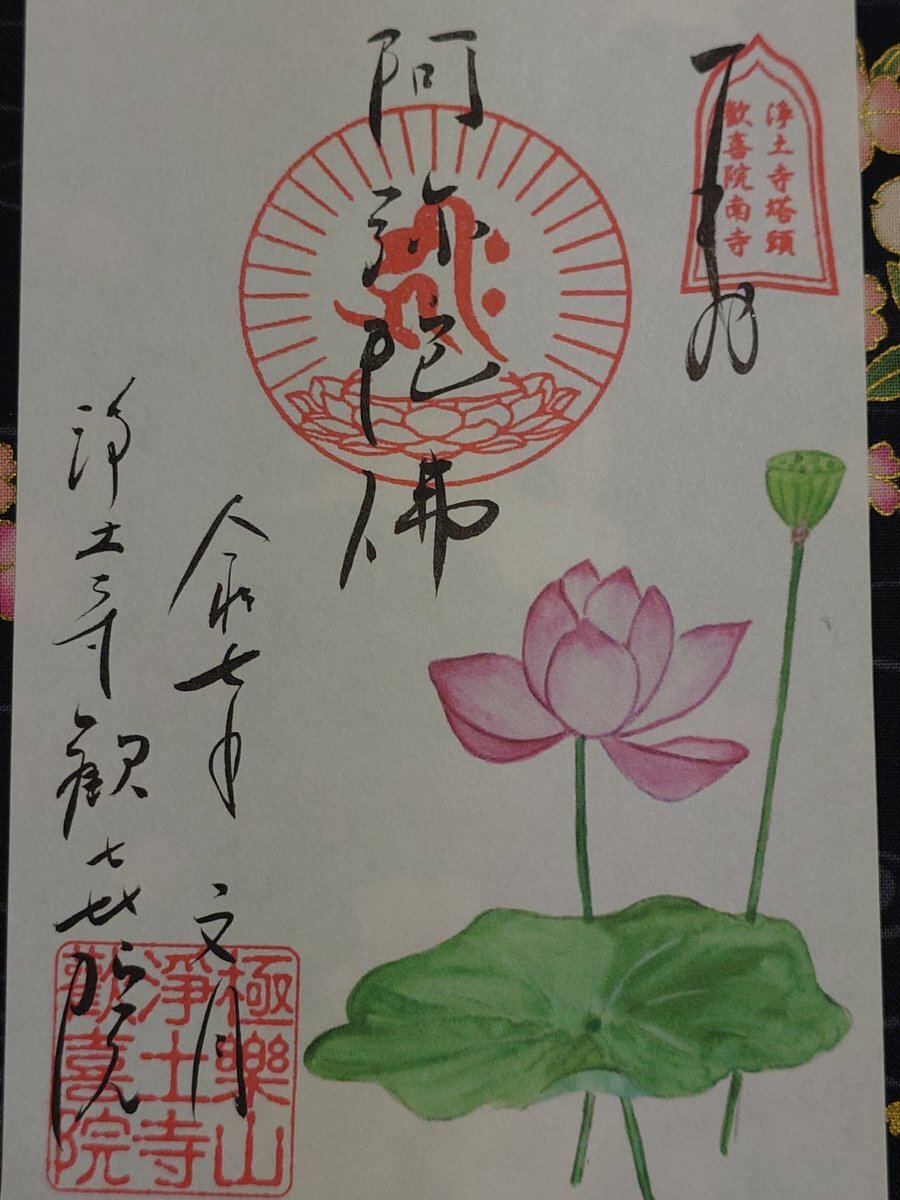 奉拝
浄土寺塔頭
歓喜院南寺
阿弥陀佛
令和七年 文月
浄土寺歓喜院
極樂山
淨土寺
歡喜院